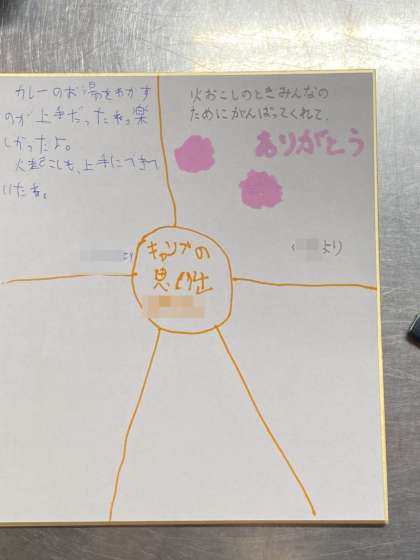 カレーのお湯をわかす
のが上手だったね。楽
しかったよ。
火起こしも、上手にできて
いたね。
より
火おこしのときみんなの
ためにがんばってくれて、
ありがとう
より
キャンプの
思い出